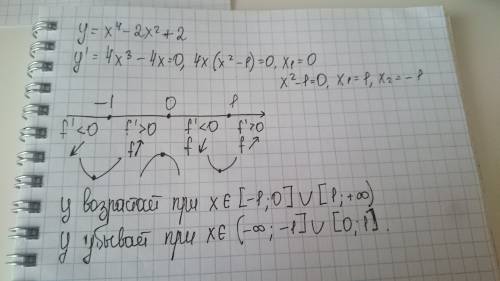 y = x⁴ - 2x² + 2
y' = 4x³ - 4x = 0, 4x(x² - 1) = 0, x₁ = 0
x² - 1 = 0, x₁ = 1, x₂ = -1
-1 0 1
f' < 0 f' > 0 f' < 0 f' > 0
↙ f↗ f↙ f↗
y возрастает при x ∈ [-1; 0] ∪ [1; +∞)
y убывает при x ∈ (-∞; -1] ∪ [0; 1].